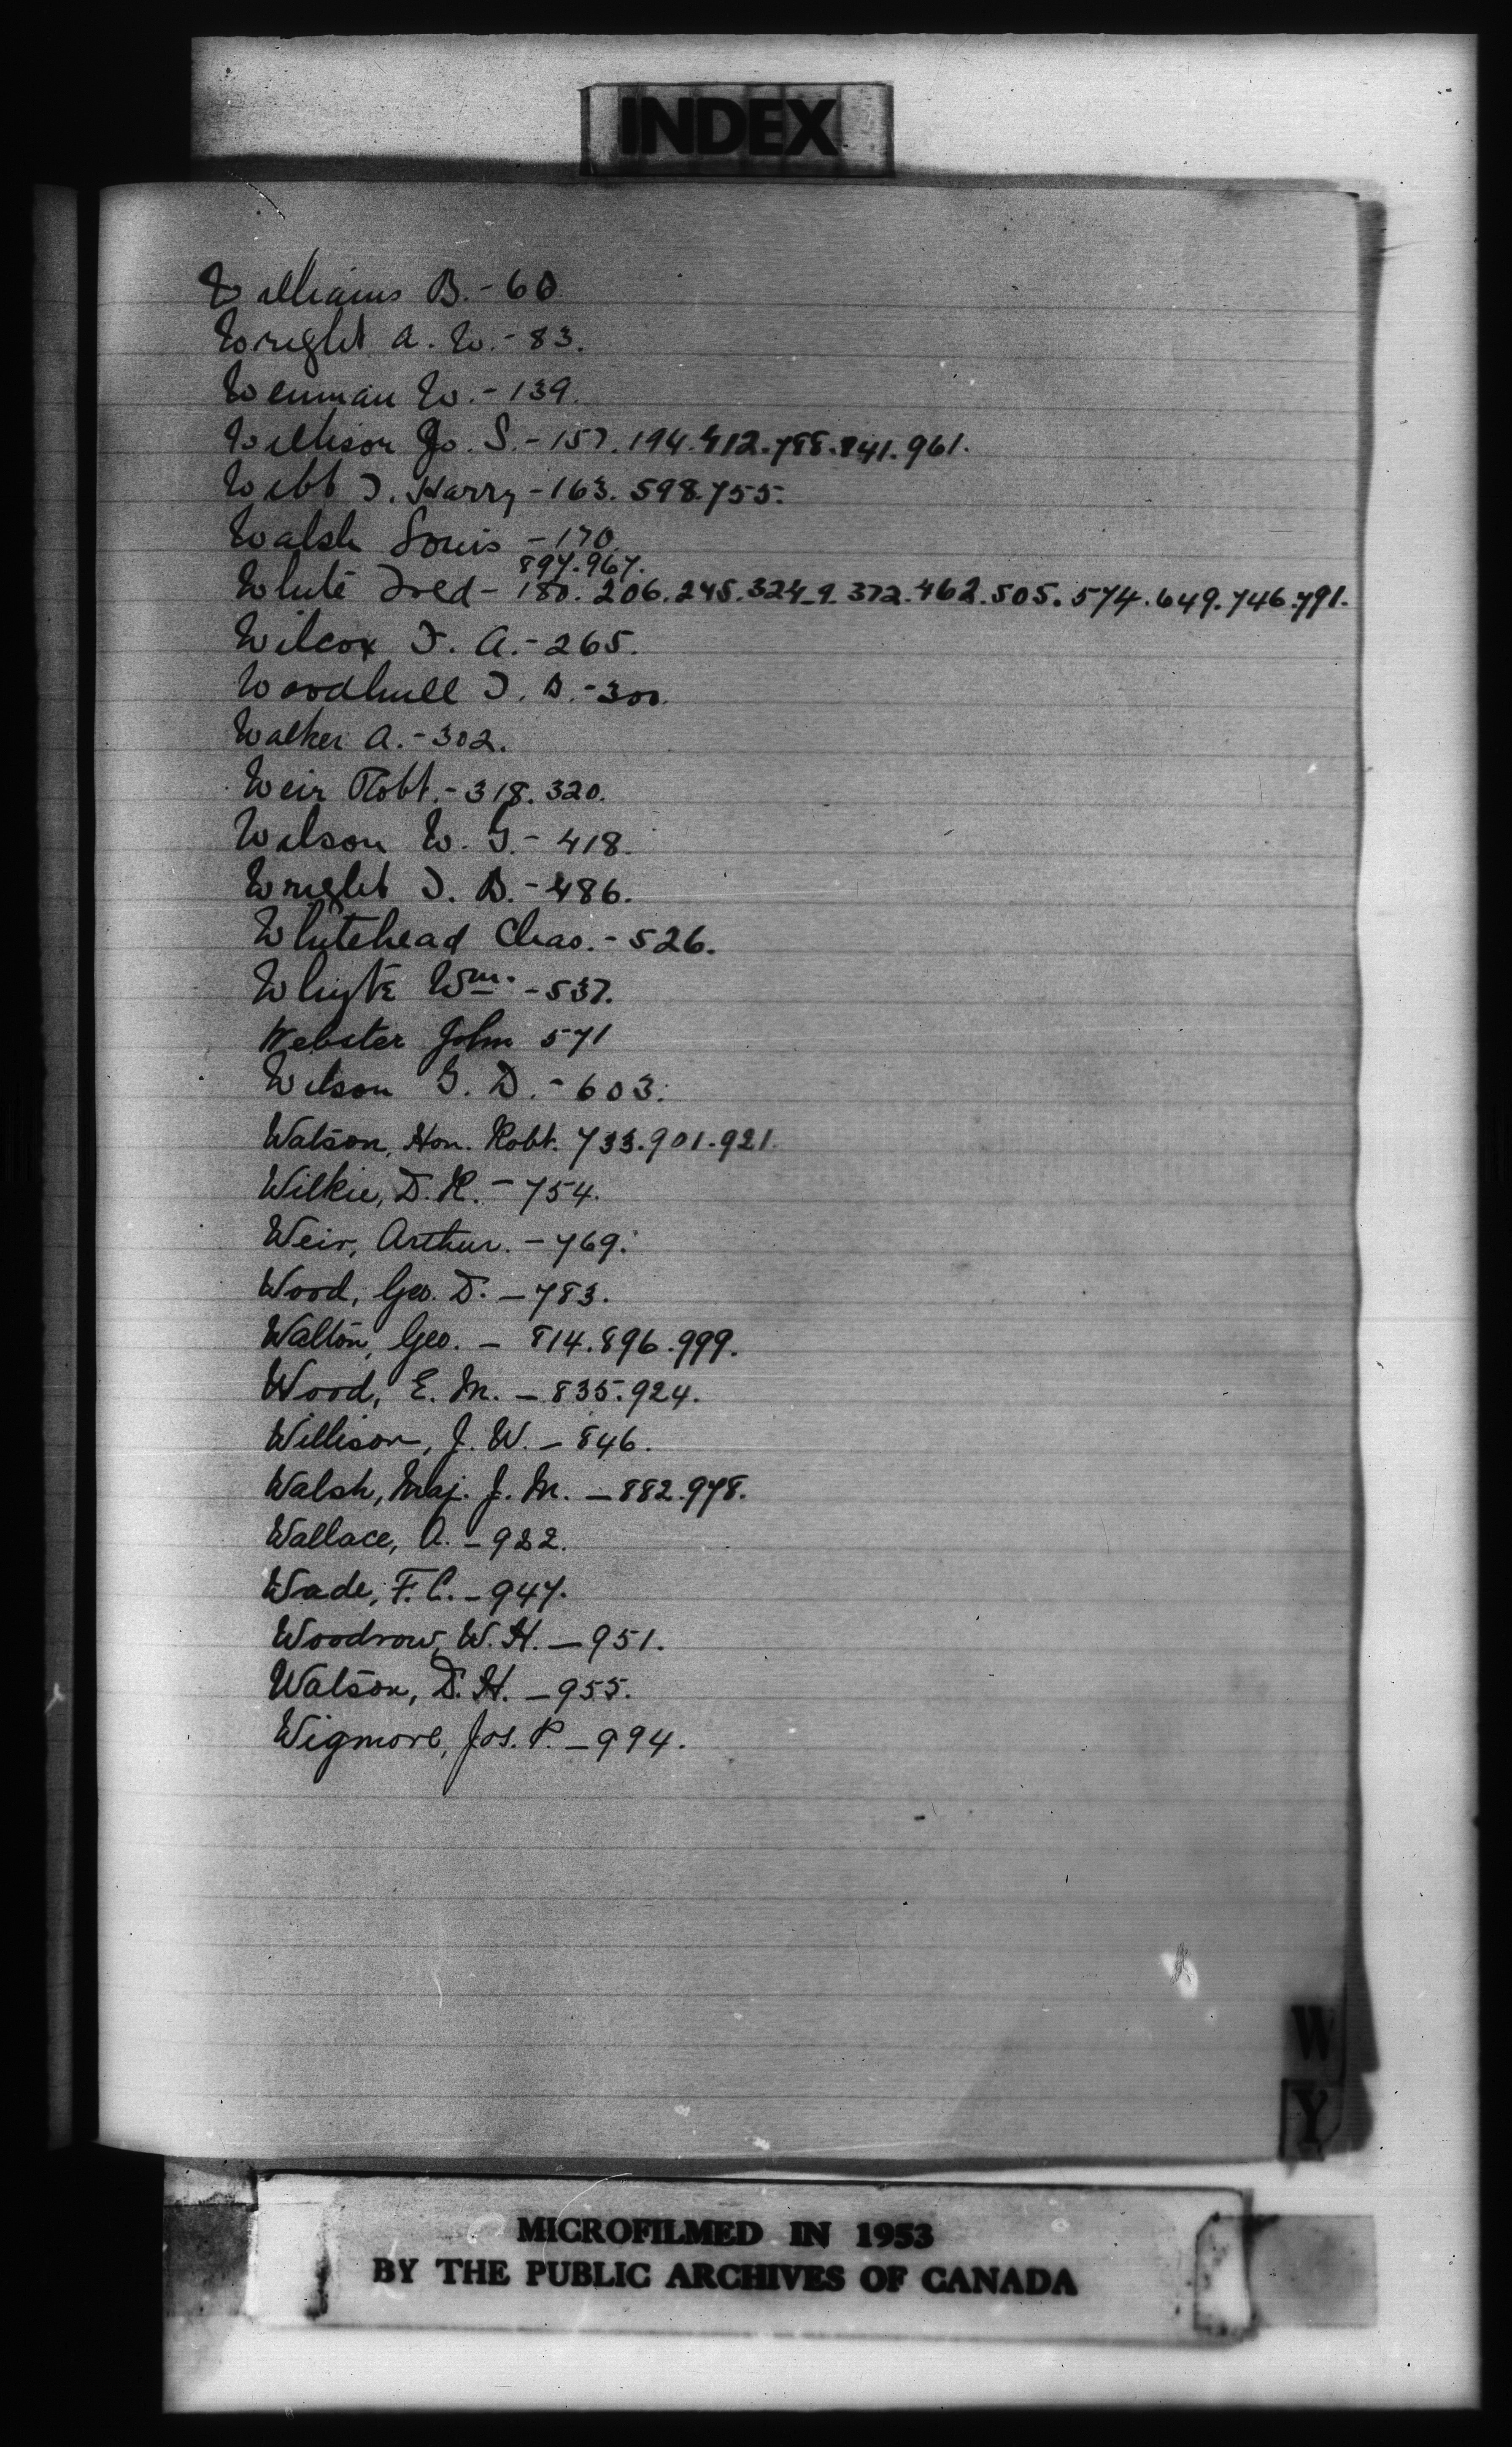 INDEX
Williams B. - 60
Wright A. W. - 83.
Wenman W. - 139.
Willison Jo. S. - 157. 194. 412. 788. 841. 961.
Webb T. Harry - 163. 598. 755.
Walsh Louis - 170
897. 967.
White Fred - 180. 206. 245. 324-9. 372. 462. 505. 574. 649. 746. 791.
Wilcox F. A. - 265.
Woodhull T. D. - 300.
Walker A. - 302.
Weir Robt. - 318. 320.
Wilson W. G. - 418.
Wright T. D. - 486.
Whitehead Chas. - 526.
Whyte Wm. - 537.
Webster John 571
Wilson G. D. - 603.
Watson, Hon. Robt. 733. 901. 921.
Wilkie, D. R. - 754.
Weir, Arthur. - 769.
Wood, Geo. D. - 783.
Walton, Geo. - 814. 896. 999.
Wood, E. M. - 835. 924.
Willison, J. W. - 846.
Walsh, Maj. J. M. - 882. 978.
Wallace, A. - 922.
Wade, F. C. - 947.
Woodrow, W. H. - 951.
Watson, D. H. - 955.
Wigmore, Jos. P. - 994.
W
Y
MICROFILMED IN 1953
BY THE PUBLIC ARCHIVES OF CANADA